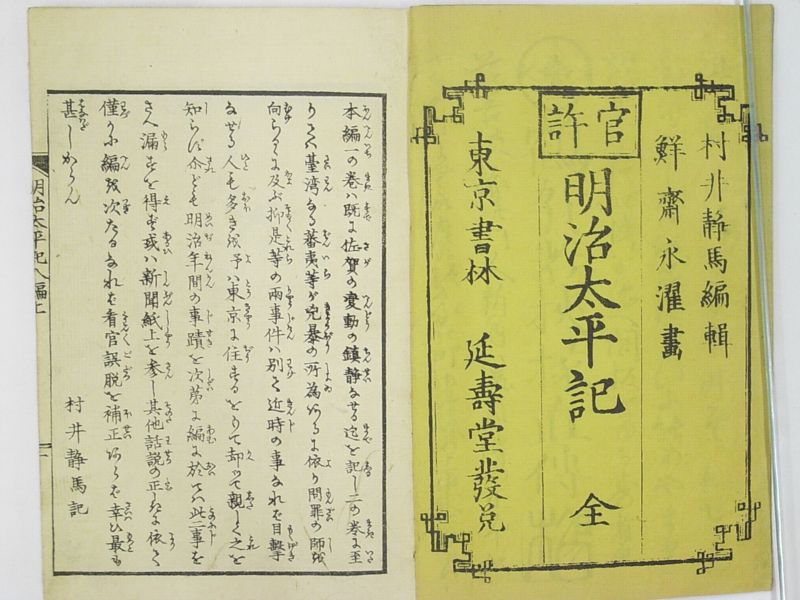 村井靜馬編輯
鮮齋永濯畫
官許
明治太平記 全
東京書林 延壽堂發兌
本編一の巻ハ既に佐賀の変動の鎮静なせる迄を記し二の巻に至
りてハ臺湾なる蕃夷等が兇暴の所為あるに依り問罪の師を
向らるゝに及ぶ抑是等の両事件ハ別て近時の事なれを目撃
なせる人も多き成予ハ東京に住するをもて却て親しく之を
知らず然ども明治年間の事蹟を次第に編に於てハ此二事を
さへ漏すを得ず或ハ新聞紙上を参し其他話説の正しきに依て
僅かに編を次たるなれを看官誤脱を補正あらを幸ひ最も
甚しからん
村井静馬記
明治太平記八編上